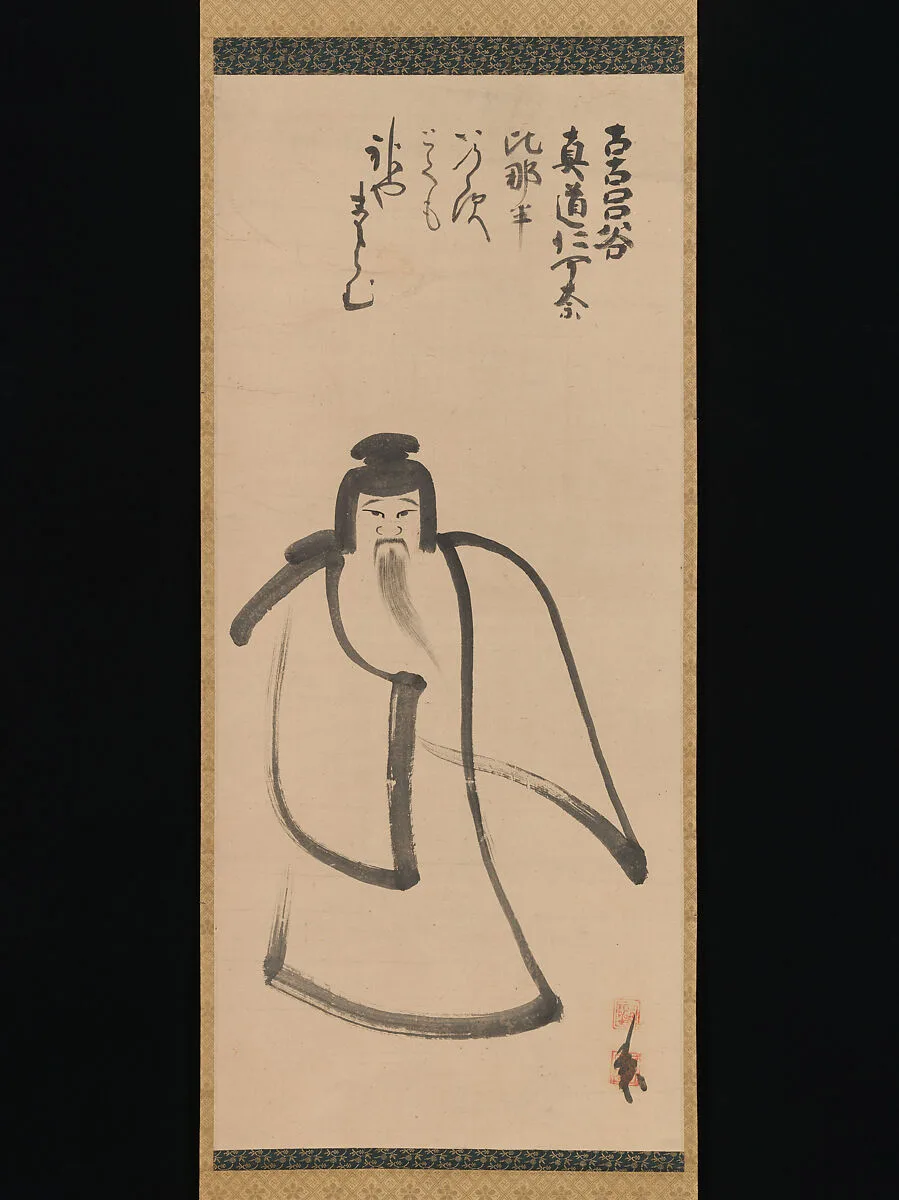 古古呂谷
真道仁可奈
比那半
いのら須
とても
神や
まもらむ